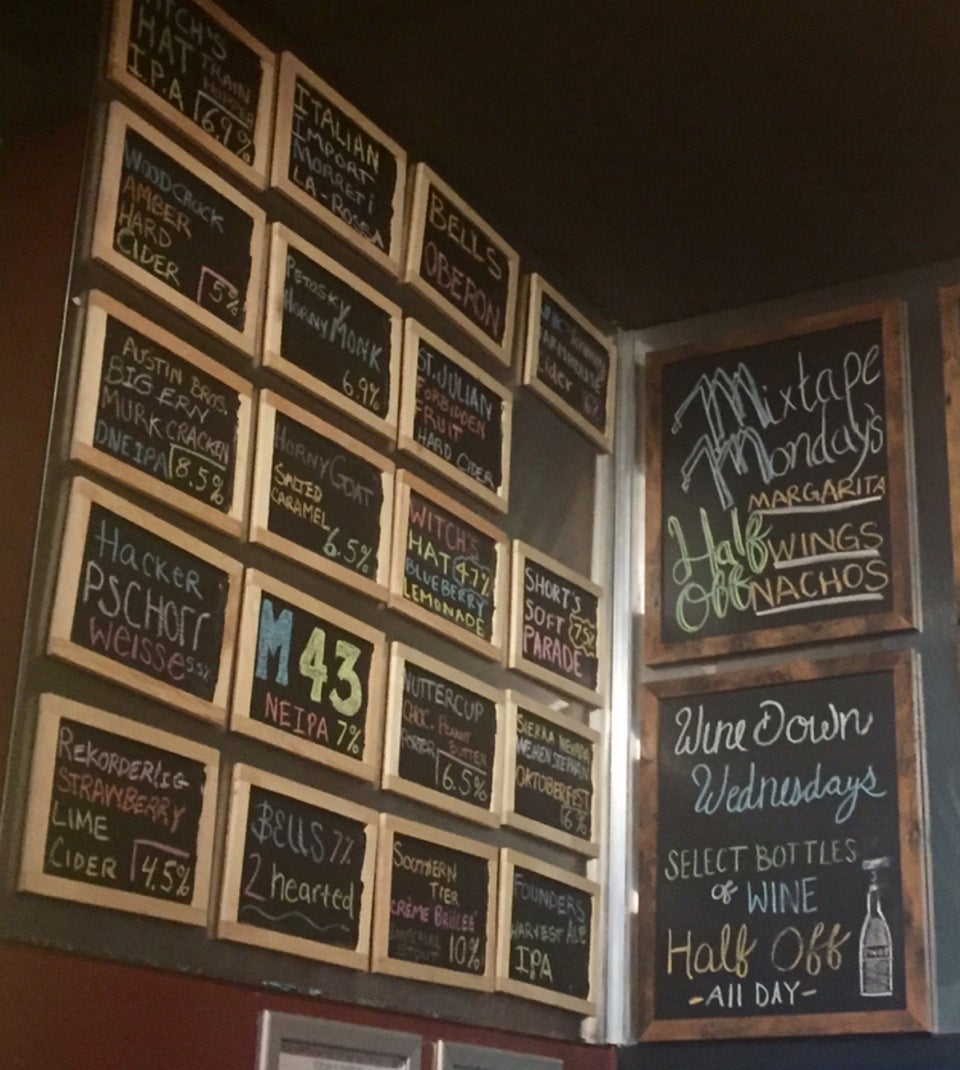 WITCH'S
HAT TRAIN
I.P.A
6.9%
ITALIAN
IMPORT
MORRETI
LA-ROSSA
BELLS
OBERON
FARMHOUSE
Cider
6%
WOODCHUCK
AMBER
HARD
CIDER 5%
PETOSKY
HORNY MONK
6.9%
ST. JULIAN
FORBIDDEN
FRUIT
HARD CIDER
AUSTIN BROS.
BIG ERN
MURK CRACKEN
ONEIPA 8.5%
HORNY GOAT
SALTED
CARAMEL
6.5%
WITCH'S
HAT 4.7%
BLUEBERRY
LEMONADE
SHORT'S
SOFT 7.5%
PARADE
HACKER
PSCHORR
WEISSE 5.5%
M43
NEIPA 7%
NUTTERCUP
CHOC-PEANUT
BUTTER
PORTER 6.5%
SIERRA NEVADA
WEIHENSTEPHAN
OKTOBERFEST
6%
REKORDERLIG
STRAWBERRY
LIME
CIDER 4.5%
BELLS 7%
2 hearted
SOUTHERN
TIER
CRÈME BRÛLEÉ
IMPERIAL
STOUT 10%
FOUNDERS
HARVEST ALE
IPA
Mixtape
Monday's
MARGARITA
Half WINGS
Off NACHOS
Wine Down
Wednesdays
SELECT BOTTLES
of WINE
Half Off
-All DAY-